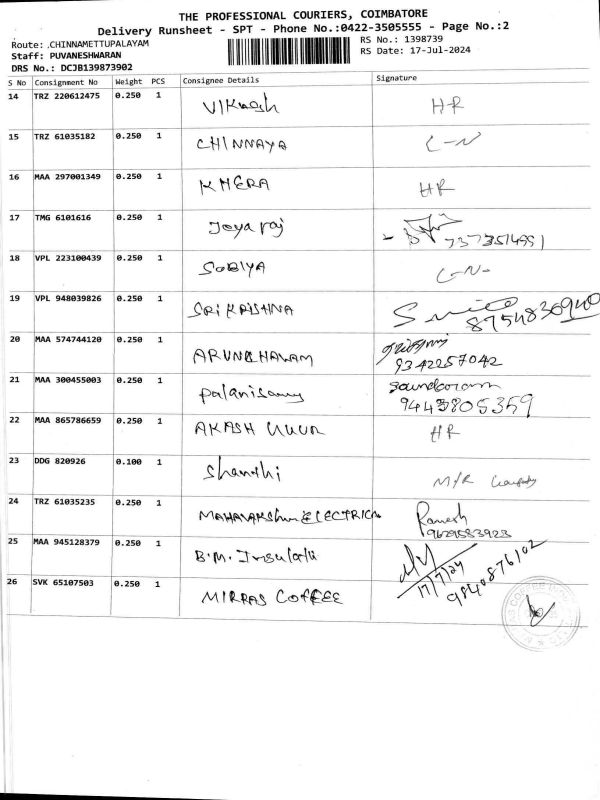 THE PROFESSIONAL COURIERS, COIMBATORE
Delivery Runsheet - SPT - Phone No.:0422-3505555 - Page No.:2
Route: .CHINNAMETTUPALAYAM RS No.: 1398739
Staff: PUVANESHWARAN RS Date: 17-Jul-2024
DRS No.: DCJB139873902
S No Consignment No Weight PCS Consignee Details Signature
14 TRZ 220612475 0.250 1 Vikash HR
15 TRZ 61035182 0.250 1 CHINNAYA L-N
16 MAA 297001349 0.250 1 KHERA HR
17 TMG 6101616 0.250 1 Jeyaraj 7373514991
18 VPL 223100439 0.250 1 SOBIYA L-N-
19 VPL 948039826 0.250 1 SRI KRISHNA 8754830940
20 MAA 574744120 0.250 1 ARUNCHALAM
9342257042
21 MAA 300455003 0.250 1 Palanisamy Soundaram
9443805359
22 MAA 865786659 0.250 1 AKASH HR
23 DDG 820926 0.100 1 Shanthi M/R
24 TRZ 61035235 0.250 1 MAHALAKSHMI ELECTRICAL Ramesh
9629583923
25 MAA 945128379 0.250 1 B.M. Insulati
17/7/24 9840876102
26 SVK 65107503 0.250 1 MIRRAS COFFEE